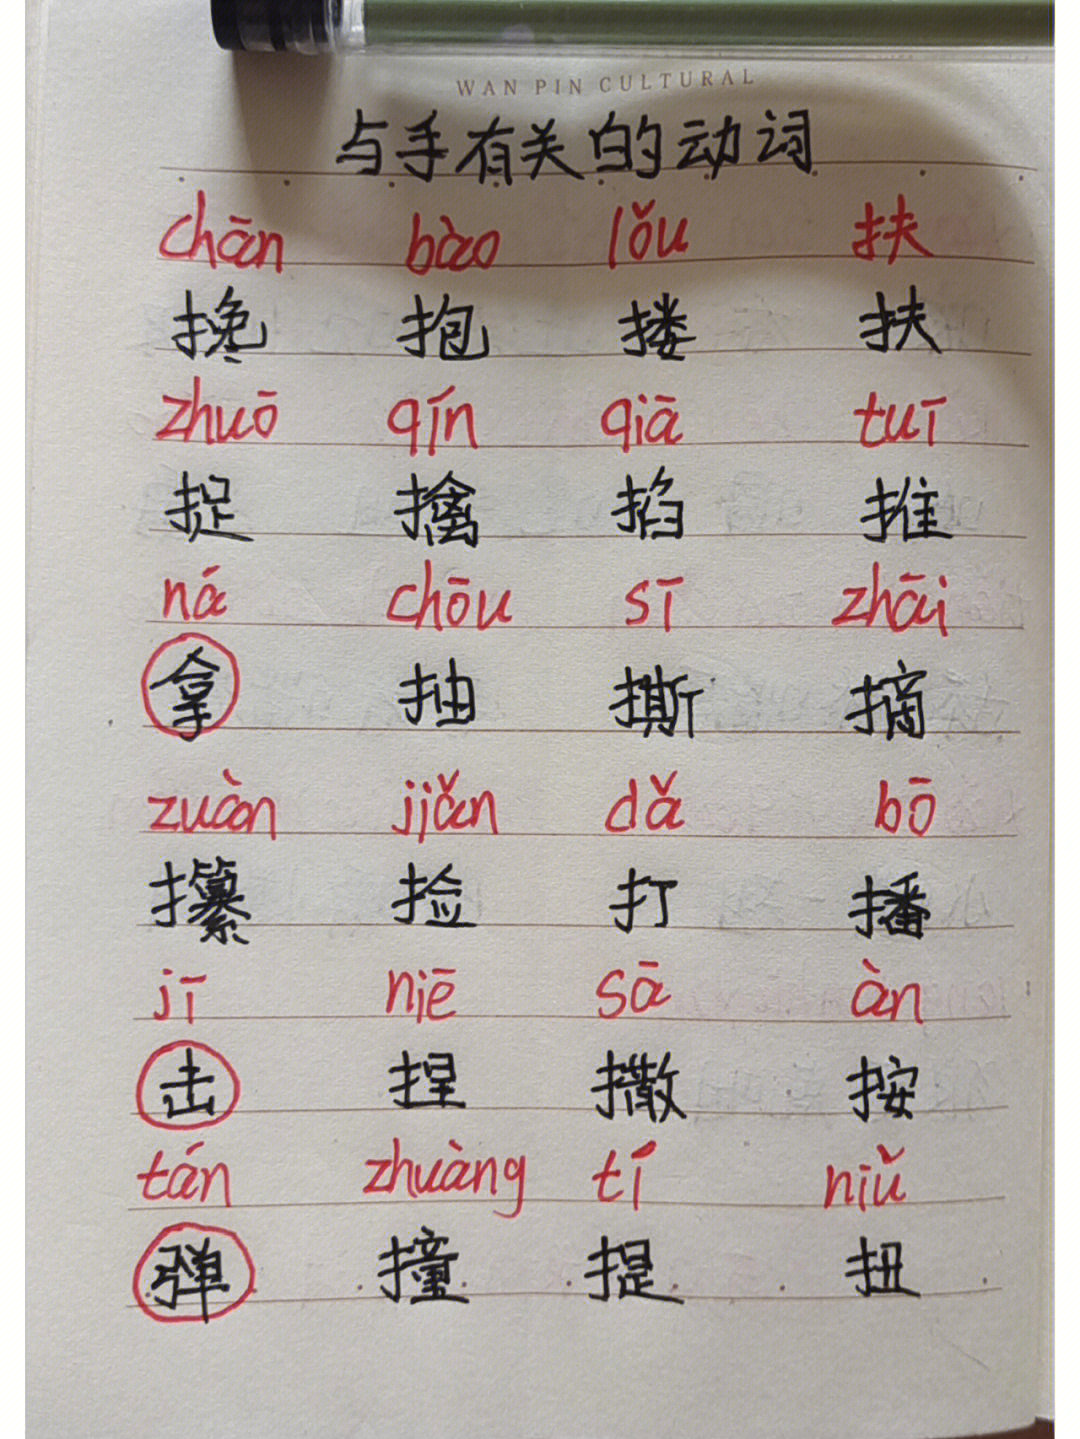 WAN PIN CULTURAL
与手有关的动词
chān bào lǒu 扶
搀 抱 搂 扶
zhuō qín qiā tuī
捉 擒 掐 推
ná chōu sī zhāi
拿 抽 撕 摘
zuàn jiǎn dǎ bō
攥 捡 打 播
jī niē sā àn
击 捏 撒 按
tán zhuàng tí niǔ
弹 撞 提 扭